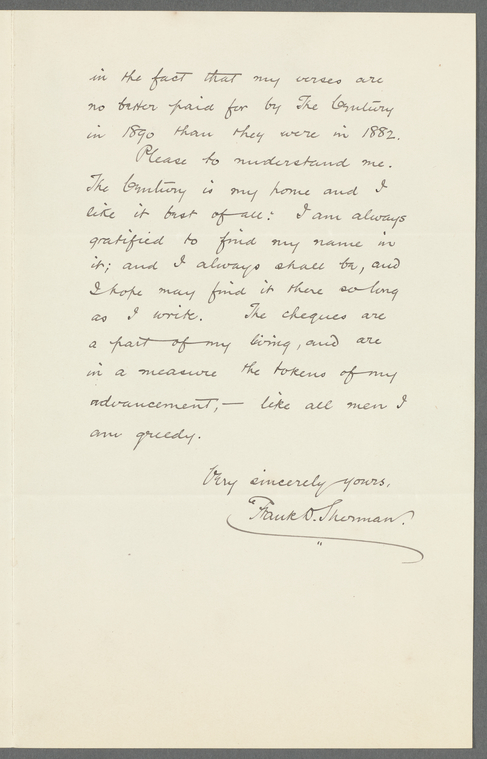 in the fact that my verses are
no better paid for by The Century
in 1890 than they were in 1882.
Please to understand me.
The Century is my home and I
like it best of all: I am always
gratified to find my name in
it; and I always shall be, and
I hope may find it there so long
as I write. The cheques are
a part of my living, and are
in a measure the tokens of my
advancement, — like all men I
am greedy.
Very sincerely yours,
Frank D. Sherman.